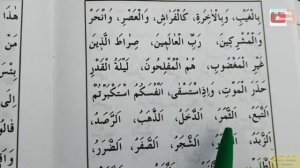 بِالْغَيْبِ، وَبِالْاٰخِرَةِ، كَالْفَرَاشِ، وَالْعَصْرِ، وَانْحَرْ
وَالْمُشْرِكِينَ، رَبِّ الْعَالَمِينَ، صِرَاطَ الَّذِينَ
غَيْرِ الْمَغْضُوبِ، هُمُ الْمُفْلِحُونَ، لَيْلَةُ الْقَدْرِ
حَذَرَ الْمَوْتِ، وَاِذِاسْتَسْقٰى، اَنْفُسُكُمُ اسْتَكْبَرْتُمْ
الثَّمَرُ، الدَّخَلُ، الذَّهَبُ، الرَّصَدُ،
الزَّبَدُ، الشَّجَرُ، الصَّفَرُ، الضَّرَرُ
هٰذَا
مِنْ